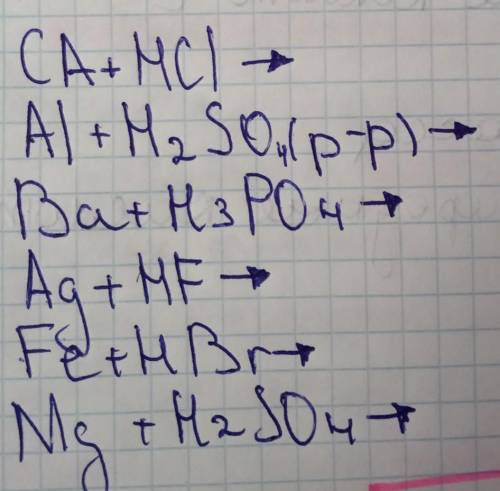 CA + HCl →
Al + H₂SO₄(р-р) →
Ba + H₃PO₄ →
Ag + HF →
Fe + HBr →
Mg + H₂SO₄ →